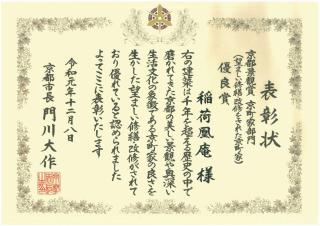 表彰状
京都景観賞 京町家部門
（望ましい修繕・改修をされた京町家）
優良賞
稲荷凰庵 様
右の建築は千年を超える歴史の中で
磨かれてきた京都の美しい景観や奥深い
生活文化の象徴である京町家の良さを
生かした望ましい修繕・改修がされて
おり優れていると認められました
よってここに表彰いたします
令和元年十二月八日
京都市長 門川大作